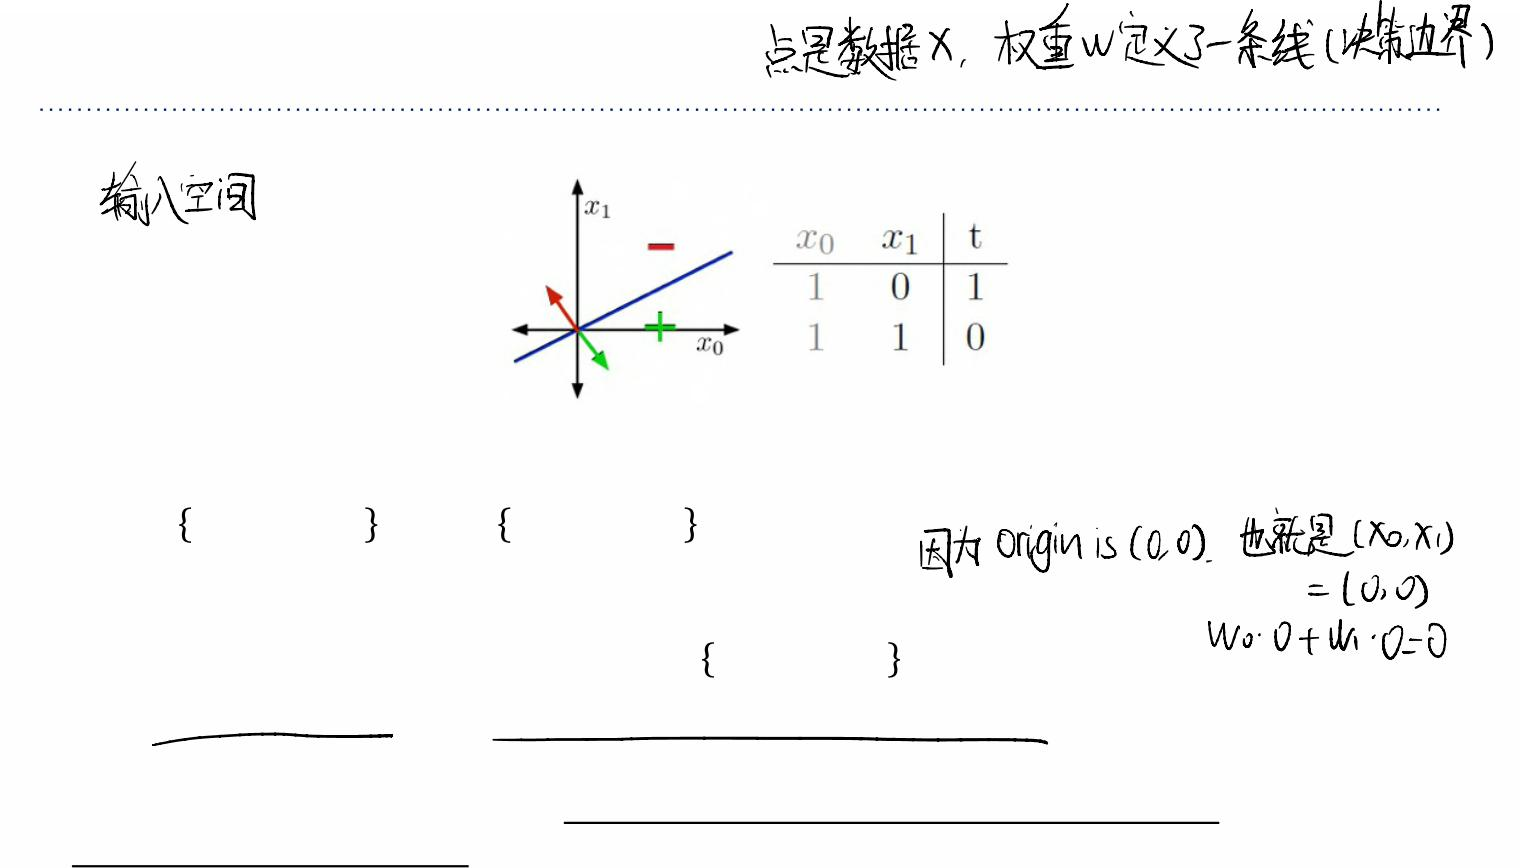 点是数据X, 权重W定义了一条线(决策边界)
输入空间
x₁
x₀
x₀ x₁ t
1 0 1
1 1 0
{ } { }
因为 Origin is (0,0). 也就是 (X₀,X₁)
= (0,0)
W₀·0+W₁·0=0
{ }